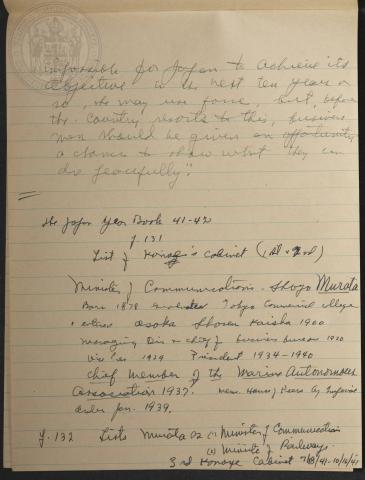 impossible for Japan to achieve its
objective in the next ten years or
so, she may use force, but, before
the country resorts to this, business
men should be given an opportunity
a chance to show what they can
do peacefully."
The Japan Year Book 41-42
p. 131
List of Konoye's cabinet (2nd & 3rd)
Minister of Communications - Shozo Murata
Born 1878 Graduated Tokyo Commercial College
entered Osaka Shosen Kaisha 1900
managing Dir & chief of business bureau 1920
Vice Pres 1929 President 1934-1940
Chief Member of the Marine Autonomous
Association 1937. Mem. House of Peers by Imperial
order Jan. 1939.
p. 132 Lists Murata as (1) Minister of Communication
(2) Minister of Railways
3rd Konoye Cabinet 7/18/41-10/16/41